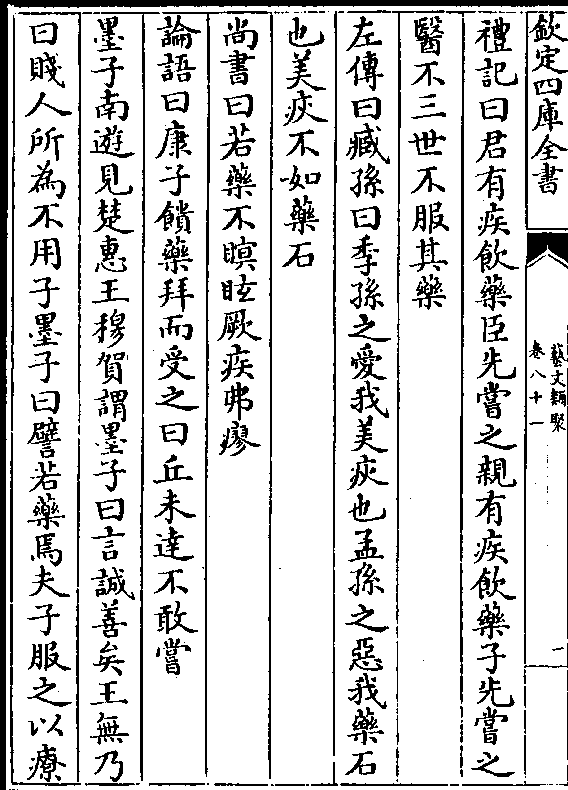 欽定四庫全書
藝文類聚
卷八十一
二
禮記曰君有疾飲藥臣先嘗之親有疾飲藥子先嘗之
醫不三世不服其藥
左傳曰臧孫曰季孫之愛我美疢也孟孫之惡我藥石
也美疢不如藥石
尚書曰若藥不瞑眩厥疾弗瘳
論語曰康子饋藥拜而受之曰丘未達不敢嘗
墨子南遊見楚惠王穆賀謂墨子曰言誠善矣王無乃
曰賤人所為不用子墨子曰譬若藥焉夫子服之以療